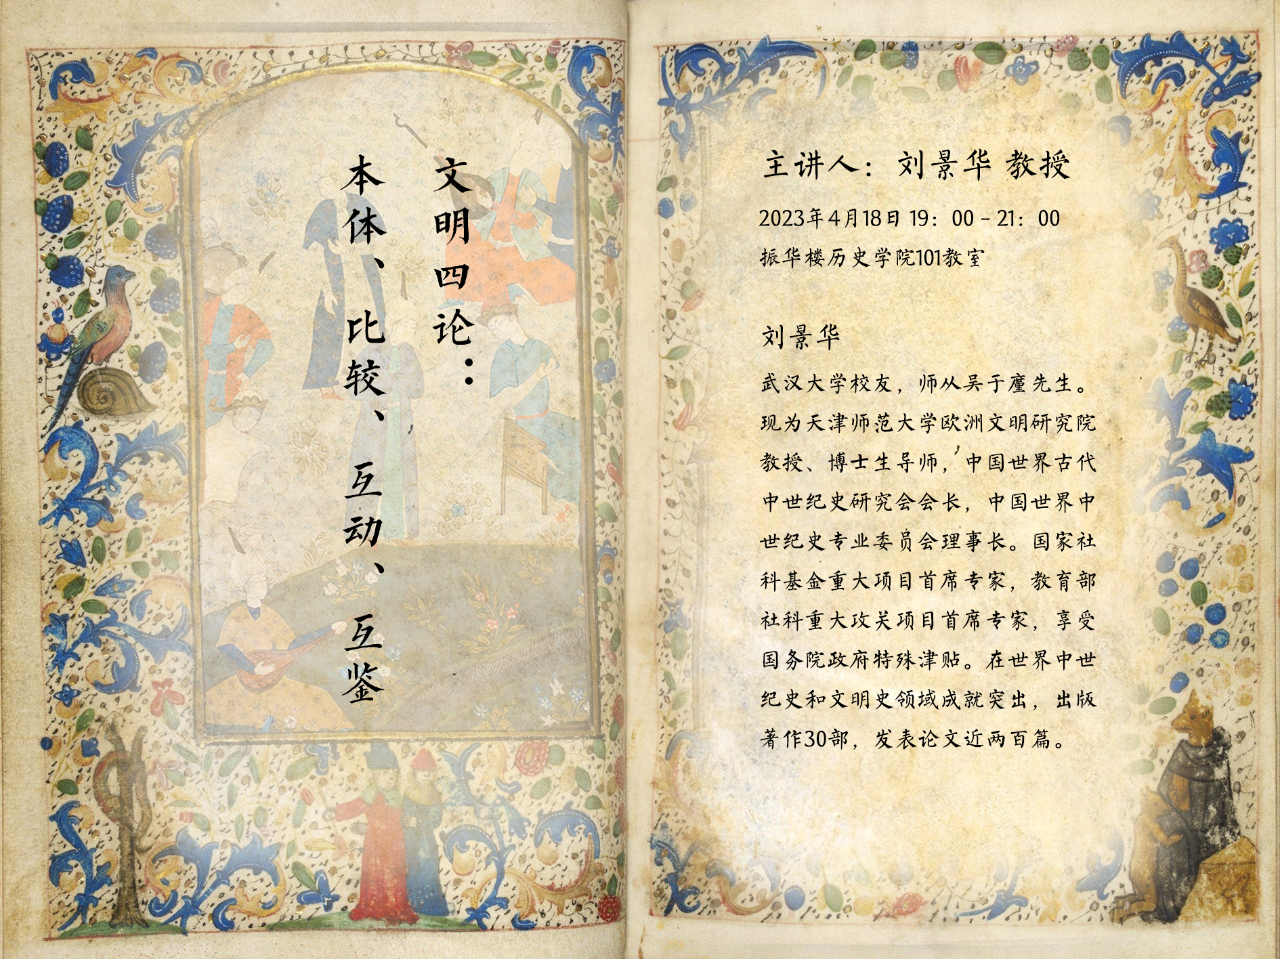 文明四论：
本体、比较、互动、互鉴
主讲人：刘景华 教授
2023年4月18日 19：00-21：00
振华楼历史学院101教室
刘景华
武汉大学校友，师从吴于廑先生。
现为天津师范大学欧洲文明研究院
教授、博士生导师，中国世界古代
中世纪史研究会会长，中国世界中
世纪史专业委员会理事长。国家社
科基金重大项目首席专家，教育部
社科重大攻关项目首席专家，享受
国务院政府特殊津贴。在世界中世
纪史和文明史领域成就突出，出版
著作30部，发表论文近两百篇。